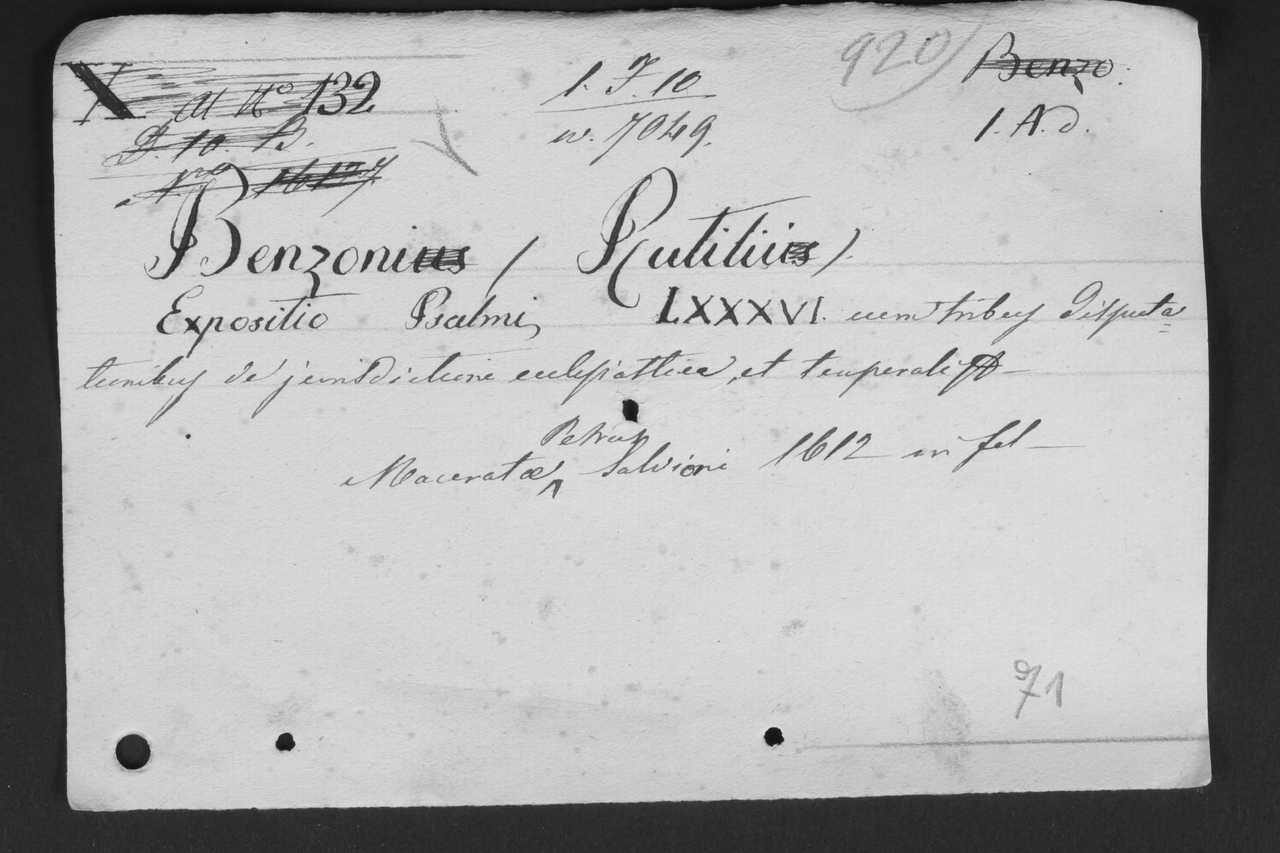 X M No 132
D. 10. B.
Nro 16127
1. F. 10
w. 7049.
920
Benzo.
1. A. d.
Benzonius / Rutilius /.
Expositio Psalmi LXXXVI. cum tribus disputa=
tionibus de jurisdictione ecclesiastica, et temporali
Petrus
Maceratæ Salvioni 1612 in fol
71